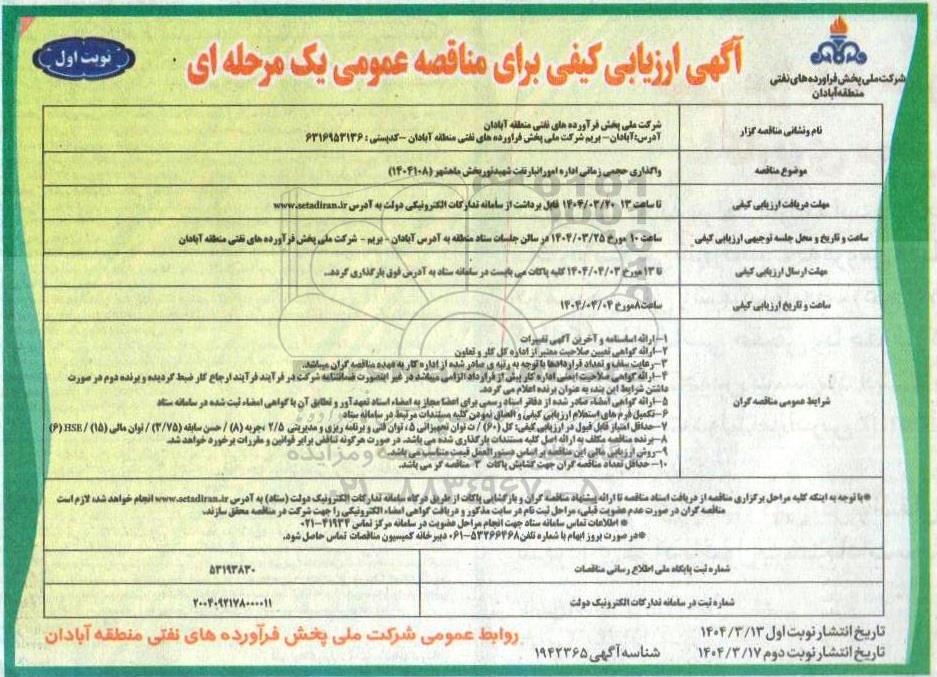 آگهی ارزیابی کیفی برای مناقصه عمومی یک مرحله ای
نوبت اول
شرکت ملی پخش فرآورده های نفتی
منطقه آبادان
نام ونشانی مناقصه گزار
شرکت ملی پخش فرآورده های نفتی منطقه آبادان
آدرس:آبادان- بریم شرکت ملی پخش فراورده های نفتی منطقه آبادان -کدپستی : ۶۳۱۶۹۵۳۱۳۶
موضوع مناقصه
واگذاری حجمی زمانی اداره امورانبارنفت شهیدنوربخش ماهشهر (۱۴۰۴۱۰۸)
مهلت دریافت ارزیابی کیفی
تا ساعت ۱۳ ۱۴۰۴/۰۳/۲۰ قابل برداشت از سامانه تدارکات الکترونیکی دولت به آدرس www.setadiran.ir
ساعت و تاریخ و محل جلسه توجیهی ارزیابی کیفی
ساعت ۱۰ مورخ ۱۴۰۴/۰۳/۲۵ در سالن جلسات ستاد منطقه به آدرس آبادان - بریم - شرکت ملی پخش فرآورده های نفتی منطقه آبادان
مهلت ارسال ارزیابی کیفی
تا ۱۳ مورخ ۱۴۰۴/۰۴/۰۳ کلیه پاکات می بایست در سامانه ستاد به آدرس فوق بارگذاری گردد..
ساعت و تاریخ ارزیابی کیفی
ساعت۸مورخ ۱۴۰۴/۰۴/۰۴
شرایط عمومی مناقصه گران
۱-ارائه اساسنامه و آخرین آگهی تغییرات
۲-ارائه گواهی تعیین صلاحیت معتبر از اداره کل کار و تعاون
۳-رعایت سقف و تعداد قراردادها با توجه به رتبه ی صادر شده از اداره کار به عهده مناقصه گران میباشد.
۴-ارائه گواهی صلاحیت ایمنی اداره کار پیش از قرارداد الزامی میباشد در غیر اینصورت ضمانتنامه شرکت در فرآیند فرآیند ارجاع کار ضبط گردیده و برنده دوم در صورت
داشتن شرایط این بند، به عنوان برنده اعلام می گردد.
۵-ارائه گواهی امضاء صادر شده از دفاتر اسناد رسمی برای اعضا مجاز به امضاء اسناد تعهدآور و تطابق آن با گواهی امضاء ثبت شده در سامانه ستاد
۶-تکمیل فرم های استعلام ارزیابی کیفی و الصاق نمودن کلیه مستندات مرتبط در سامانه ستاد
۷-حداقل امتیاز قابل قبول در ارزیابی کیفی: کل (۶۰) / ت توان تجهیزاتی ۵، توان فنی و برنامه ریزی و مدیریتی ۲/۵ ،تجربه (۸) / حسن سابقه (۳/۷۵) / توان مالی (۱۵) / HSE (۶)
۸-برنده مناقصه مکلف به ارائه اصل کلیه مستندات بارگذاری شده می باشد. در صورت هرگونه تناقض برابر قوانین و مقررات برخورد خواهد شد.
۹-روش ارزیابی مالی این مناقصه بر اساس دستورالعمل قیمت متناسب می باشد.
۱۰-حداقل تعداد مناقصه گران جهت گشایش پاکات ۲ مناقصه گر می باشد.
*با توجه به اینکه کلیه مراحل برگزاری مناقصه از دریافت اسناد مناقصه تا ارائه پیشنهاد مناقصه گران و بازگشایی پاکات از طریق درگاه سامانه تدارکات الکترونیک دولت (ستاد) به آدرس www.setadiran.ir انجام خواهد شد، لازم است
مناقصه گران در صورت عدم عضویت قبلی، مراحل ثبت نام در سایت مذکور و دریافت گواهی امضاء الکترونیکی را جهت شرکت در مناقصه محقق سازند.
* اطلاعات تماس سامانه ستاد جهت انجام مراحل عضویت در سامانه مرکز تماس ۴۱۹۳۴-۰۲۱
*در صورت بروز ابهام با شماره تلفن۵۳۲۶۶۴۶۸-۰۶۱ دبیرخانه کمیسیون مناقصات تماس حاصل شود.
شماره ثبت پایگاه ملی اطلاع رسانی مناقصات
۵۳۱۹۳۸۳۰
شماره ثبت در سامانه تدارکات الکترونیک دولت
۲۰۰۴۰۹۲۱۷۸۰۰۰۰۱۱
تاریخ انتشار نوبت اول ۱۴۰۴/۳/۱۳
تاریخ انتشار نوبت دوم ۱۴۰۴/۳/۱۷
شناسه آگهی ۱۹۴۲۳۶۵
روابط عمومی شرکت ملی پخش فرآورده های نفتی منطقه آبادان